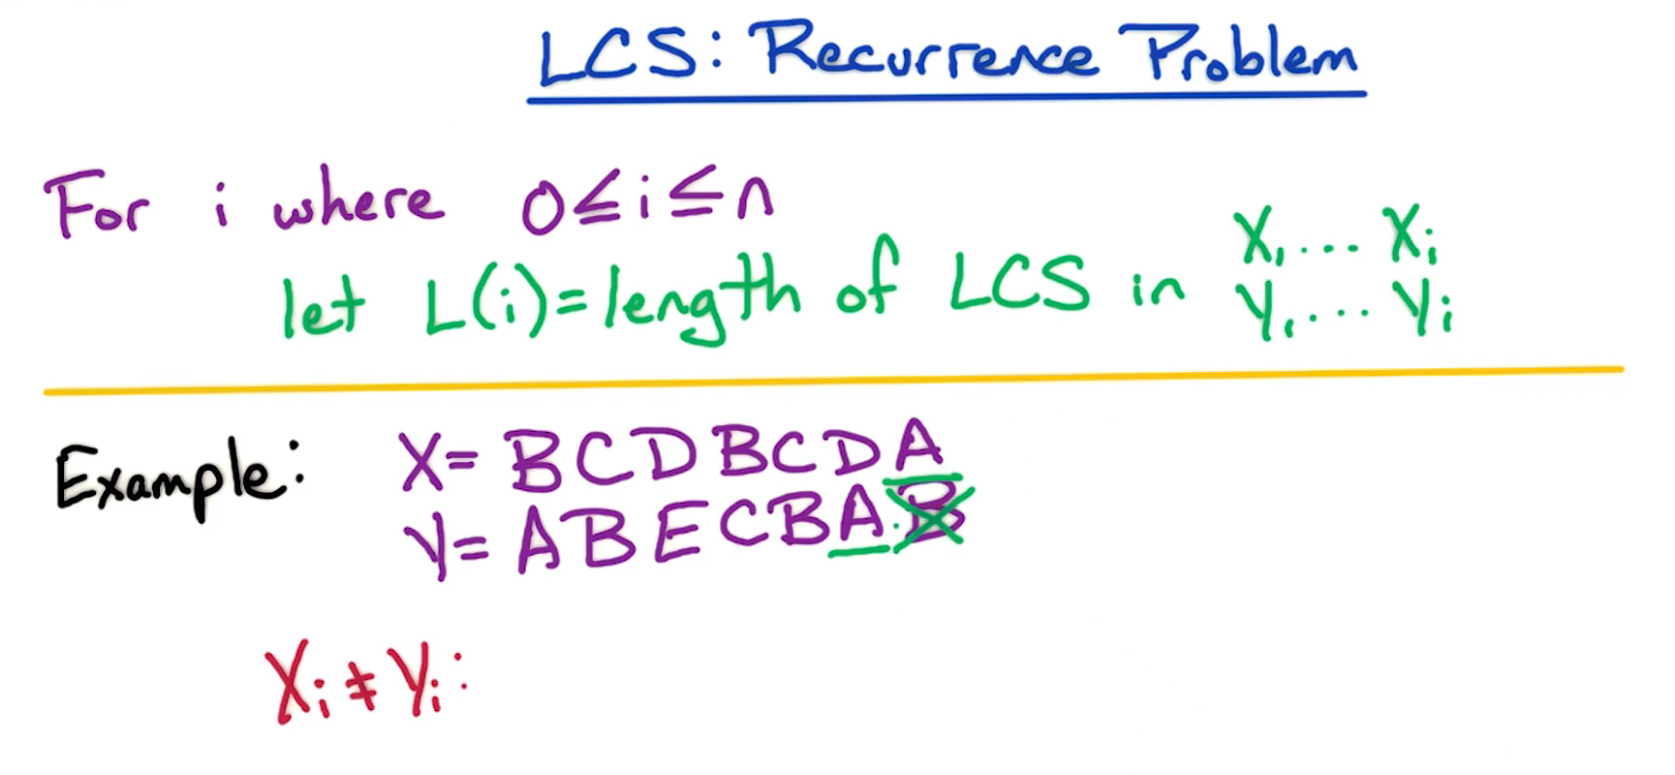 LCS: Recurrence Problem
For i where 0≤i≤n
let L(i)=length of LCS in X₁... Xᵢ
Y₁.... Yᵢ
Example: X= BCDBCDA
Y= ABECBAB
Xᵢ ≠ Yᵢ: